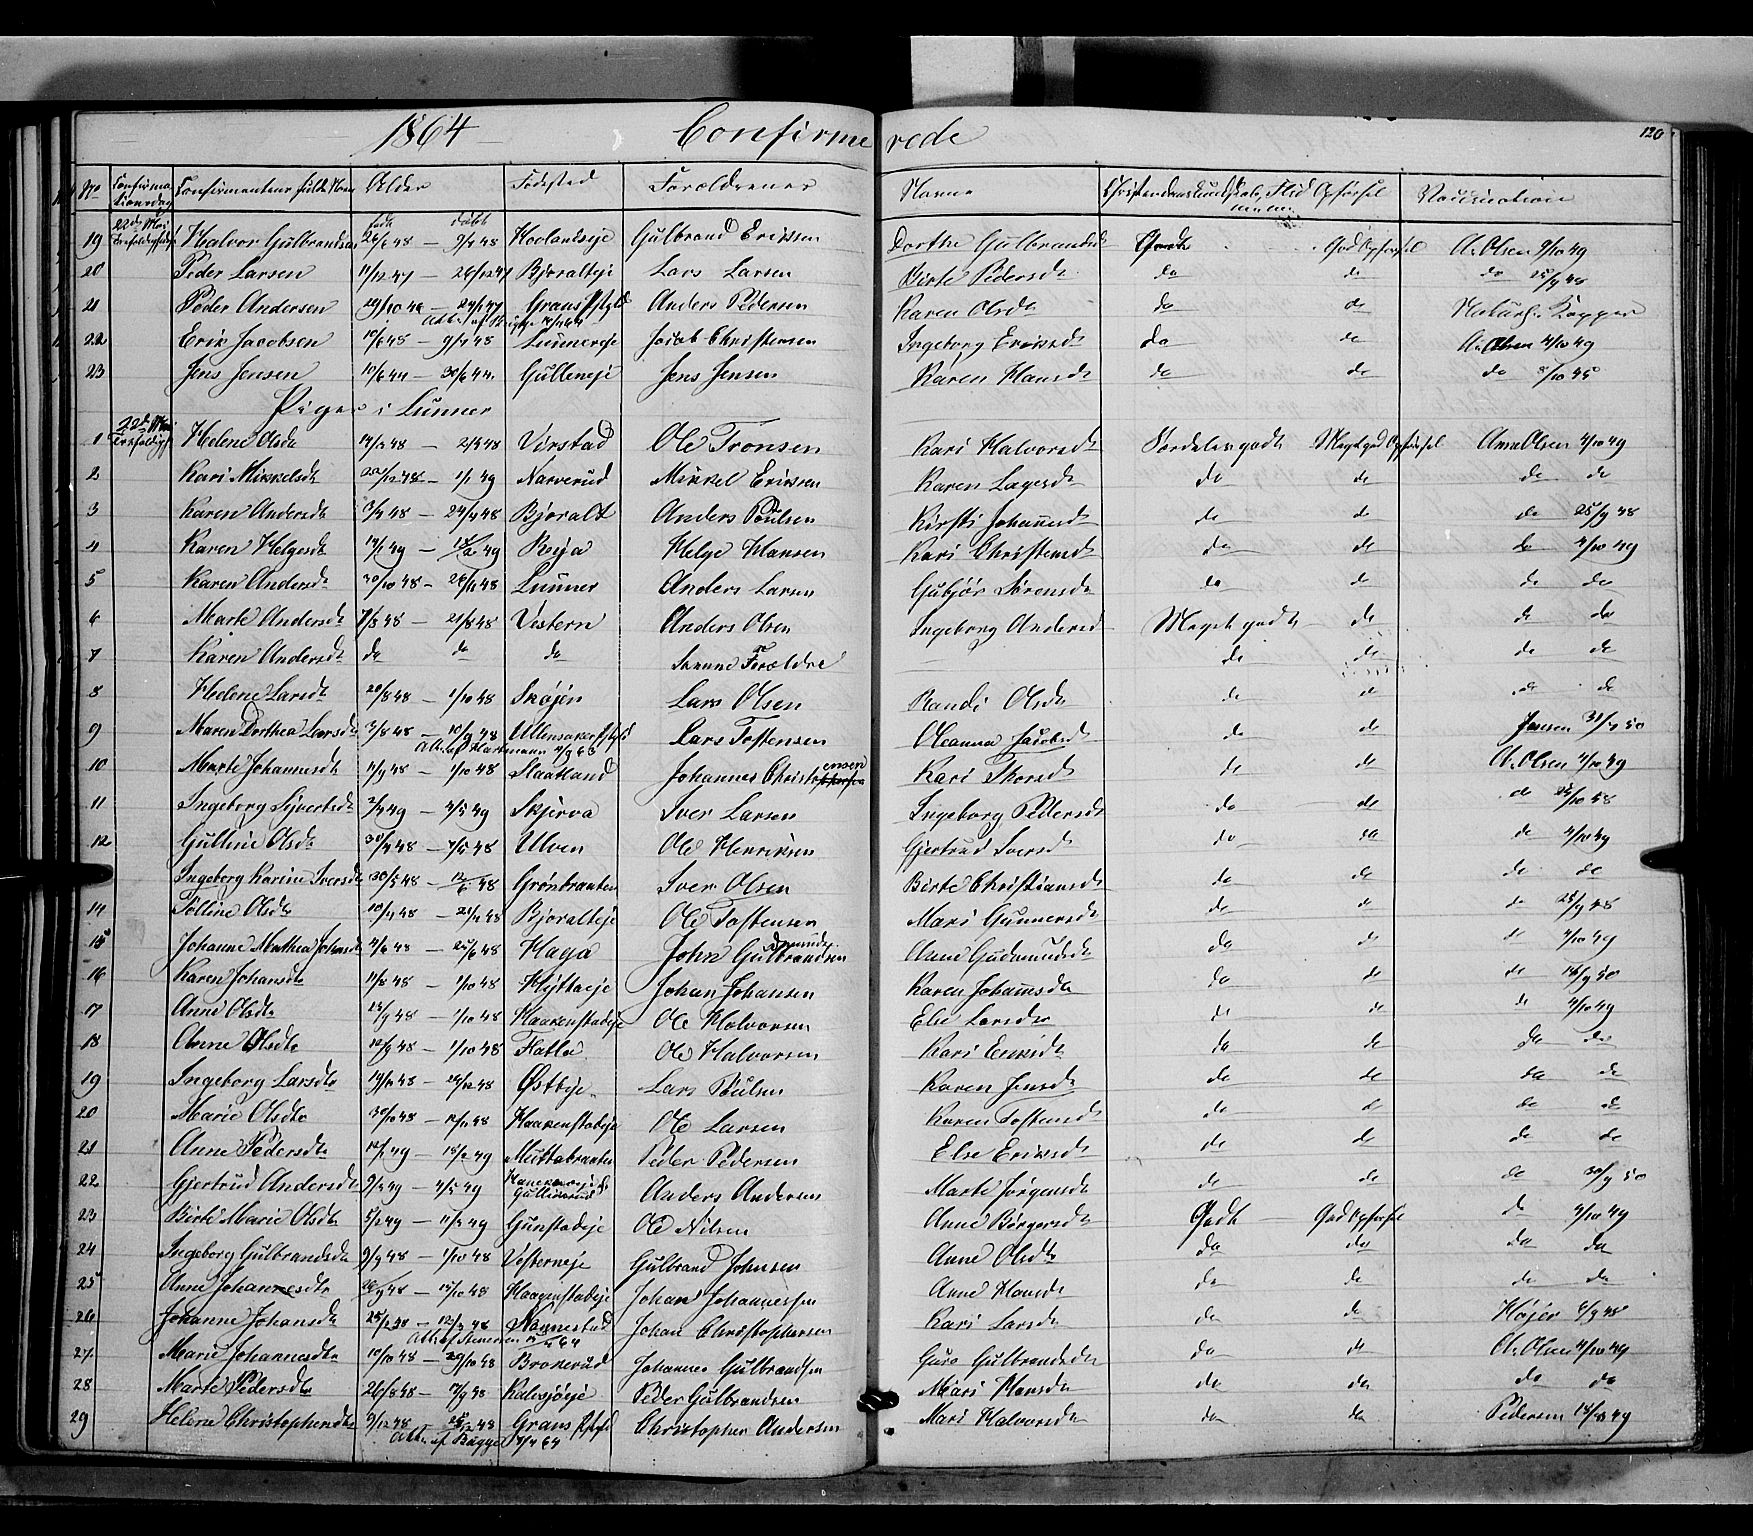 1864 Confirmerede 120
No Confirmationsdag Confirmanteur fulde Navn Alder Fødested Forældrenes Navne Christendomskundskab Flid Opførsel Vaccination
født døbt
19 22de Mai Halvor Gulbrandsen 26/6 48 — 9/7 48 Hovlandseje Gulbrand Eriksen Dorthe Gulbrandsd. Godt God Opførsel A. Olsen 9/10 49
20 Peder Larsen 11/12 47 — 26/12 47 Bjoralteje Lars Larsen Birte Pedersd. do do do 25/9 48
21 Peder Andersen 29/10 46 — 24/1 47 Grans Pgjld Anders Pedersen Karen Olsd. do do Naturl. Kopper
22 Erik Jacobsen 10/6 48 — 9/7 48 Lunnereje Jacob Christensen Ingeborg Eriksd. do do A. Olsen 4/10 49
23 Jens Jensen 10/6 44 — 30/6 44 Gulleneje Jens Jensen Karen Hansd. do do do 8/10 45
Piger i Lunner
1 22de Mai Helene Olsd. 14/2 48 — 2/3 48 Virstad Ole Tronsen Kari Halvorsd. Særdeles godt Meget god Opførsel Arne Olsen 4/10 49
2 Kari Mikkelsd. 20/12 48 — 1/1 49 Narverud Mikkel Eriksen Karen Lagesd. do do do do
3 Karen Andersd. 3/4 48 — 24/4 48 Bjoralt Anders Poulsen Kirsti Johannesd. do do do 25/9 48
4 Karen Helgesd. 14/1 49 — 18/2 49 Roija Helge Hansen Kari Christensd. do do do 4/10 49
5 Karen Andersd. 30/10 48 — 26/11 48 Lunner Anders Larsen Gubjør Sørensd. do do do do
6 Marte Andersd. 7/8 48 — 21/8 48 Vestern Anders Olsen Ingeborg Andersd. Meget godt do do do
7 Karen Andersd. do do do Samme Forældre do do do do
8 Helene Larsd. 20/8 48 — 1/10 48 Skøjen Lars Olsen Randi Olsd. do do do do
9 Maren Dorthea Larsd. 3/8 48 — 10/9 48 Ullensaker Pgjld Lars Tostensen Oleanna Jacobsd. do do Jensen 31/7 50
10 Marte Johannesd. 11/9 48 — 1/10 48 Slaatland Johannes Christensen Kari Thorsd. do do A. Olsen 4/10 49
11 Ingeborg Syvertsd. 2/4 49 — 4/5 49 Skjerva Sver Larsen Ingeborg Pedersd. do do do 25/10 58
12 Gulline Olsd. 30/4 48 — 7/5 48 Ulven Ole Henriksen Gjertrud Sversd. do do do 4/10 49
Ingeborg Karine Sversd. 30/5 48 — 12/6 48 Grønbraaten Sver Olsen Birte Christiansd. do do do do
14 Polline Olsd. 10/4 48 — 24/4 48 Bjoralteje Ole Tostensen Mari Gunnersd. do do do 25/9 48
15 Johanne Mathea Johnsd. 4/6 48 — 25/6 48 Haga John Gudmundsen Anne Gudmundsd. do do do 4/10 49
16 Karen Johansd. 11/8 48 — 1/10 48 Hyttaeje Johan Johansen Karen Johannsd. do do do 16/9 50
17 Anne Olsd. 24/9 48 — 1/10 48 Haakenstadeje Ole Halvorsen Else Larsd. do do do 4/10 49
18 Anne Olsd. 12/9 48 — 1/10 48 Flatla Ole Halvorsen Kari Eriksd. do do do do
19 Ingeborg Larsd. 14/11 48 — 26/12 48 Østbye Lars Poulsen Karen Jensd. do do do do
20 Marie Olsd. 30/10 48 — 12/11 48 Haakenstadeje Ole Larsen Karen Tostensd. do do do do
21 Anne Pedersd. 12/1 49 — 18/2 49 Muttabraaten Peder Pedersen Else Eriksd. do do do do
22 Gjertrud Andersd. 9/3 49 — 4/5 49 Gullinrud Anders Andersen Marte Jørgensd. do do do 30/9 50
23 Birte Marie Olsd. 5/2 49 — 11/3 49 Gunstadeje Ole Nilsen Anne Børgersd. Godt God Opførsel do 4/10 49
24 Ingeborg Gulbrandsd. 9/9 48 — 1/10 48 Vesterneje Gulbrand Johnsen Anne Olsd. do do do do
25 Anne Johannesd. 26/9 48 — 15/10 48 Haagenstadeje Johan Johannessen Anne Hansd. do do do do
26 Johanne Johansd. 25/2 48 — 12/3 48 Nannestad Johan Christophersen Kari Larsd. do do Højer 6/9 48
27 Marie Johannesd. 10/10 48 — 29/10 48 Brokerud Johannes Gulbrandsen Guro Gulbrandsd. do do A. Olsen 4/10 49
28 Marte Pedersd. 26/8 48 — 17/9 48 Kalvsjøeje Peder Gulbrandsen Mari Hansd. do do do do
29 Helene Christophersd. 9/12 48 — 26/12 48 Grans Pgjld Christopher Andersen Mari Halvorsd. do do Pedersen 14/8 49
Att. af Bugge 4/4 64